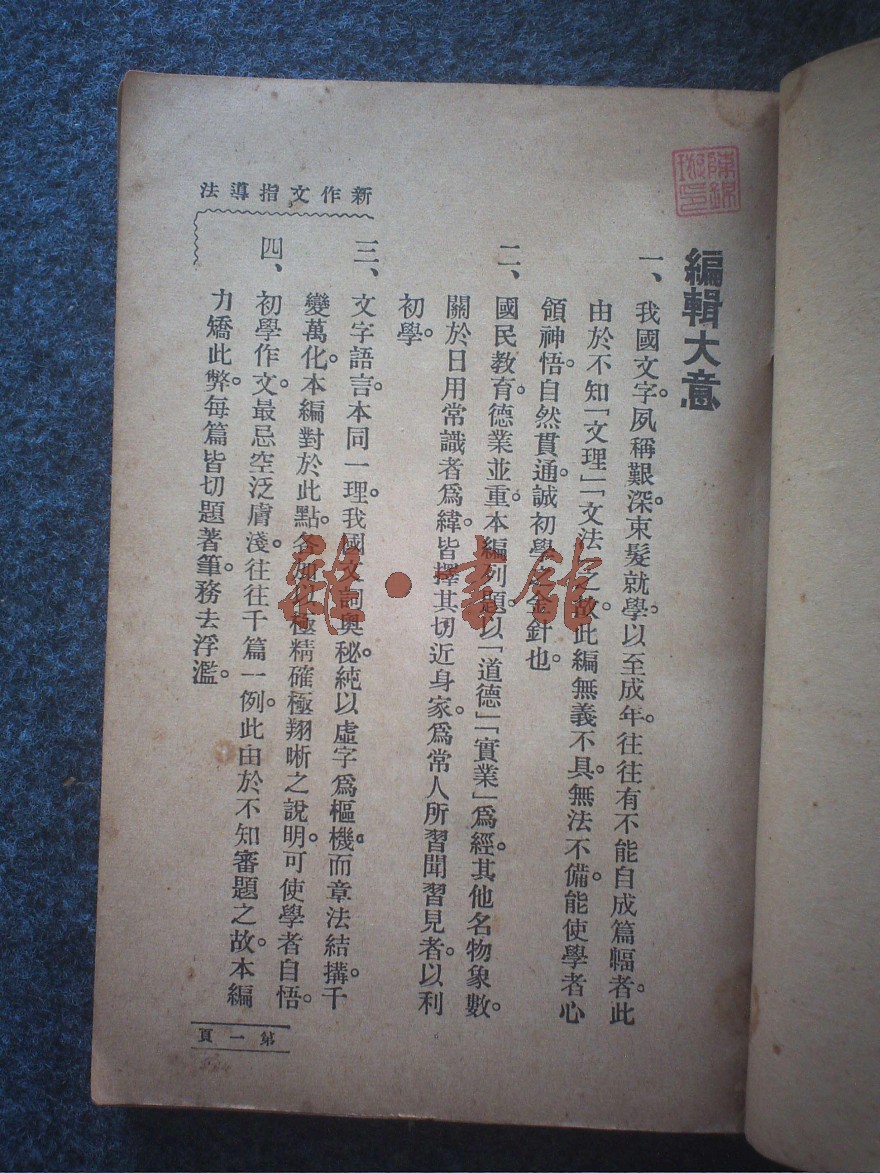 編輯大意
一、我國文字。夙稱艱深。束髮就學。以至成年。往往有不能自成篇幅者。此
由於不知「文理」「文法」之故。此編無義不具。無法不備。能使學者心
領神悟。自然貫通。誠初學之金針也。
二、國民教育。德業並重。本編列題。以「道德」「實業」爲經。其他名物象數。
關於日用常識者爲緯。皆擇其切近身家。爲常人所習聞習見者。以利
初學。
三、文字語言。本同一理。我國文詞奧秘。純以虛字爲樞機。而章法結搆。千
變萬化。本編對於此點。各加以極精確極翔晰之說明。可使學者自悟。
四、初學作文。最忌空泛膚淺。往往千篇一例。此由於不知審題之故。本編
力矯此弊。每篇皆切題著筆。務去浮濫。
新作文指導法
第一頁
雜·書館